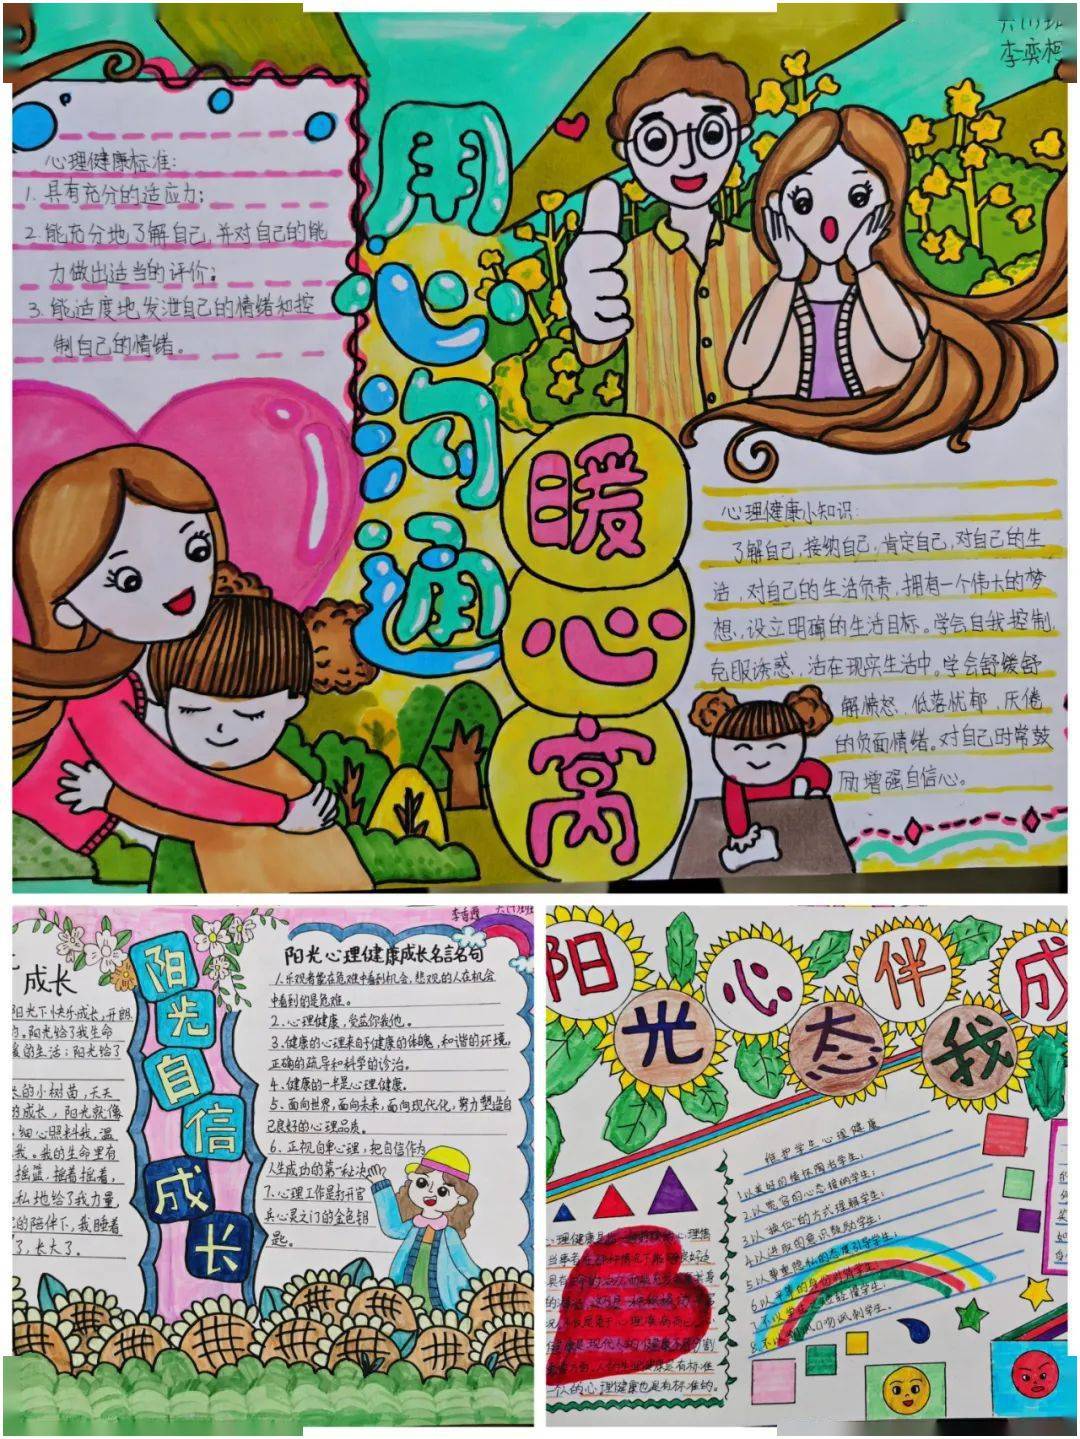 李奕
心理健康标准:
1. 具有充分的适应力;
2. 能充分地了解自己,并对自己的能
力做出适当的评价;
3. 能适度地发泄自己的情绪和控
制自己的情绪。
用心沟通
暖心窝
心理健康小知识:
了解自己,接纳自己,肯定自己,对自己的生
活,对自己的生活负责,拥有一个伟大的梦
想,设立明确的生活目标。学会自我控制,
克服诱惑,活在现实生活中。学会舒缓舒
解愤怒,低落忧郁,厌倦
的负面情绪。对自己时常鼓
励增强自信心。
成长
阳光下快乐成长,开朗
的。阳光给了我生命
的生活;阳光给了
的小树苗,天天
的成长,阳光就像
细心照料我,温
我。我的生命里有
摇篮,摇着摇着,
私地给了我力量,
的陪伴下,我睡着
了,长大了。
阳光自信成长
李香
阳光心理健康成长名言名句
1.乐观者常在危难中看到机会,悲观的人在机会
中看到的是危难。
2、心理健康,受益你我他。
3、健康的心理来自于健康的体魄,和谐的环境,
正确的疏导和科学的诊治。
4、健康的一半是心理健康。
5、面向世界,面向未来,面向现代化,努力塑造自
己良好的心理品质。
6、正视自卑心理,把自信作为
人生成功的第一秘决
7、心理工作是打开官
兵心灵之门的金色钥
匙。
阳光心态伴我成
维护学生心理健康
1.以美好的情怀陶冶学生;
2.以宽容的心态接纳学生;
3.以"换位"的方式理解学生;
4.以进取的意识鼓励学生;
5.以尊重隐私的态度引导学生;
6.以平等的身份对待学生;
8.不以 口吻讽刺学生。
心理健康是
是有标准
一个人的心理健康也是有标准的。